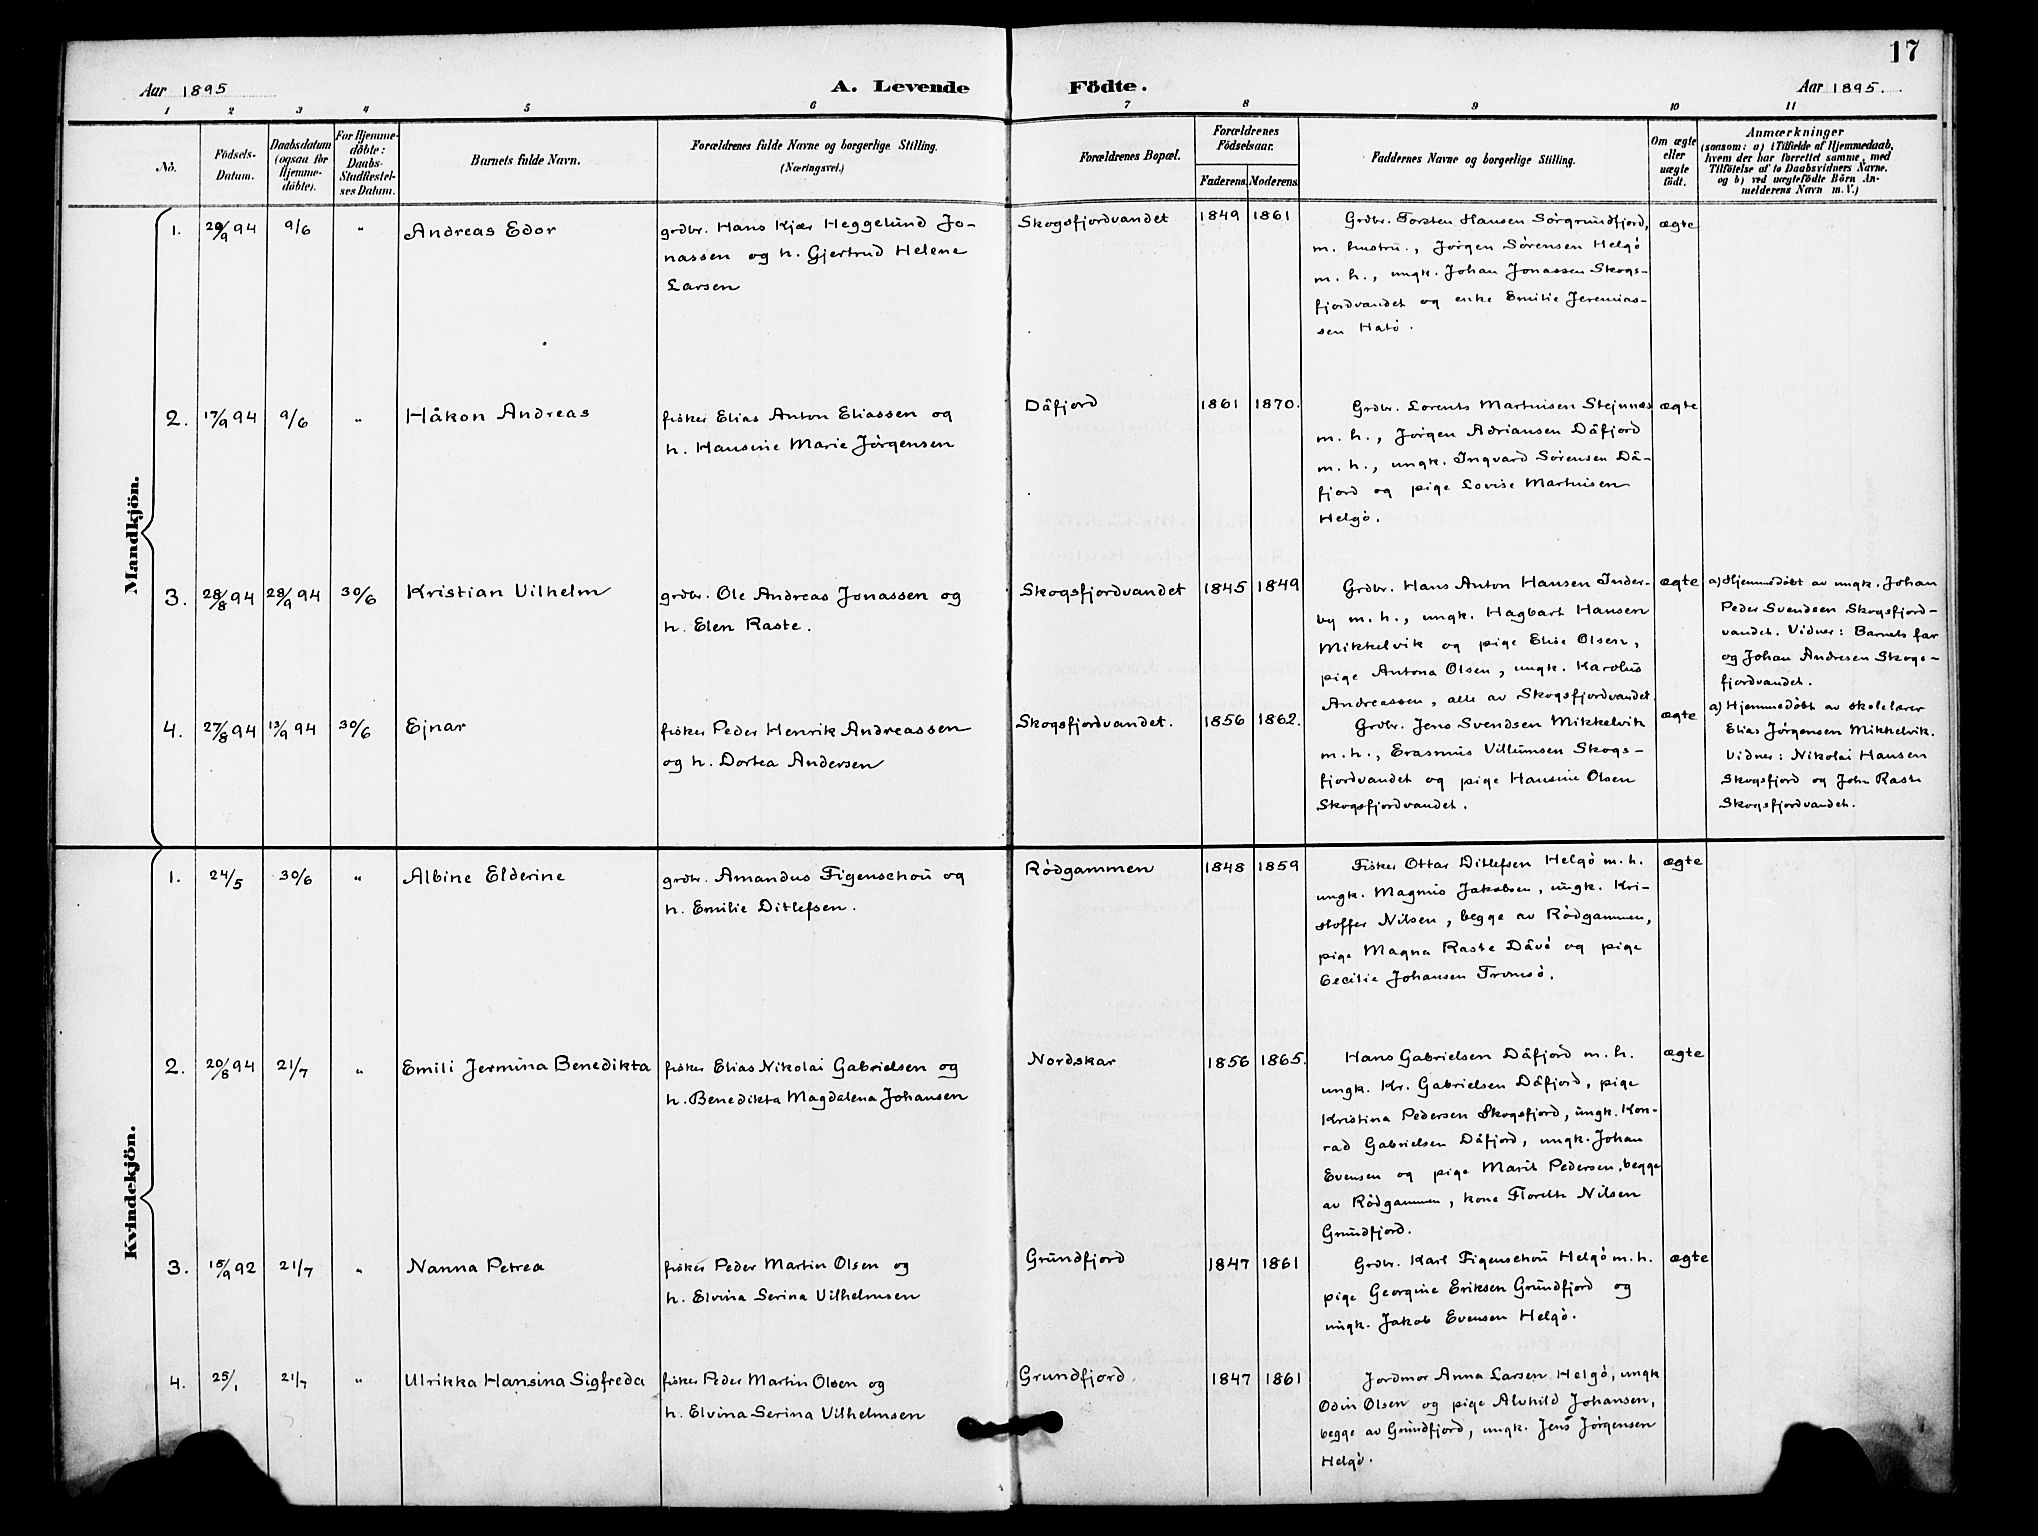 17
Aar 1895
A. Levende
Födte.
Aar 1895.
1 2 3 4 5 6 7 8 9 10 11
No.
Födsels-
Datum.
Daabsdatum
(ogsaa for
Hjemme-
döbte).
For Hjemme-
döbte:
Daabs-
Stadfæstel-
ses Datum.
Barnets fulde Navn.
Forældrenes fulde Navne og borgerlige Stilling.
(Næringsvei.)
Forældrenes Bopæl.
Forældrenes
Födselsaar.
Faderens. Moderens.
Faddernes Navne og borgerlige Stilling.
Om ægte
eller
uægte
født.
Anmærkninger
(saasom: a) i Tilfælde af Hjemmedaab,
hvem der har forrettet samme, med
Tilföielse af to Daabsvidners Navne.
og b) ved uægtefödte Börn An-
melderens Navn m. V.)
Mandkjön.
1. 29/9 94 9/6 " Andreas Edor
grdbr. Hans Kjær Heggelund Jo-
nassen og h. Gjertrud Helene
Larsen
Skogsfjordvandet 1849 1861
Grdbr. Torsten Hansen Sörgrundfjord,
m. hustru., Jörgen Sörensen Helgö
m. h., ungk. Johan Jonassen Skogs-
fjordvandet og enke Emilie Jeremias-
sen Hatö.
ægte
2. 17/9 94 9/6 " Håkon Andreas
fisker Elias Anton Eliassen og
h. Hansine Marie Jörgensen
Dåfjord 1861 1870.
Grdbr. Lorents Martinsen Stejnnes
m. h., Jörgen Adriansen Dåfjord
m. h., ungk. Ingvard Sörensen Då-
fjord og pige Lovise Martinsen
Helgö.
ægte
3. 28/8 94 23/9 94 30/6 Kristian Vilhelm
grdbr. Ole Andreas Jonassen og
h. Elen Raste.
Skogsfjordvandet 1845 1849
Grdbr. Hans Anton Hansen Inder-
by m. h., ungk. Hagbart Hansen
Mikkelvik og pige Elise Olsen,
pige Antona Olsen, ungk. Karolus
Andreassen, alle av Skogsfjordvandet.
ægte
a) Hjemmedöbt av ungk. Johan
Peder Svendsen Skogsfjord-
vandet. Vidner: Barnets far
og Johan Andresen Skogs-
fjordvandet.
4. 27/8 94 13/9 94 30/6 Ejnar
fisker Peder Henrik Andreassen
og h. Dortea Andersen
Skogsfjordvandet. 1856 1862.
Grdbr. Jens Svendsen Mikkelvik
m. h., Erasmus Villumsen Skogs-
fjordvandet og pige Hansine Olsen
Skogsfjordvandet.
ægte
a) Hjemmedöbt av skolelærer
Elias Jörgensen Mikkelvik.
Vidner: Nikolai Hansen
Skogsfjord og John Raste
Skogsfjordvandet.
Kvindekjön.
1. 24/5 30/6 " Albine Elderine
grdbr. Amandus Figenschou og
h. Emilie Ditlefsen.
Rödgammen 1848 1859
Fisker Ottar Ditlefsen Helgö m. h.
ungk. Magnus Jakobsen, ungk. Kri-
stoffer Nilsen, begge av Rödgammen,
pige Magna Raste Dåvö og pige
Cecilie Johansen Tromsö.
ægte
2. 20/8 94 21/7 " Emili Jermina Benedikta
fisker Elias Nikolai Gabrielsen og
h. Benedikta Magdalena Johansen
Nordskar 1856 1865.
Hans Gabrielsen Dåfjord m. h.
ungk. Kr. Gabrielsen Dåfjord, pige
Kristina Pedersen Skogsfjord, ungk. Kon-
rad Gabrielsen Dåfjord, ungk. Johan
Evensen og pige Marit Pedersen, begge
av Rödgammen, kone Floreth Nilsen
Grundfjord.
ægte
3. 15/9 92 21/7 " Nanna Petrea
fisker Peder Martin Olsen og
h. Elvina Serina Vilhelmsen
Grundfjord 1847 1861
Grdbr. Karl Figenschou Helgö m. h.
pige Georgine Eriksen Grundfjord og
ungk. Jakob Evensen Helgö.
ægte
4. 25/1 21/7 " Ulrikka Hansina Sigfreda
fisker Peder Martin Olsen og
h. Elvina Serina Vilhelmsen
Grundfjord 1847 1861
Jordmor Anna Larsen Helgö, ungk
Odin Olsen og pige Alvhild Johansen,
begge av Grundfjord, ungk. Jens Jörgensen
Helgö.